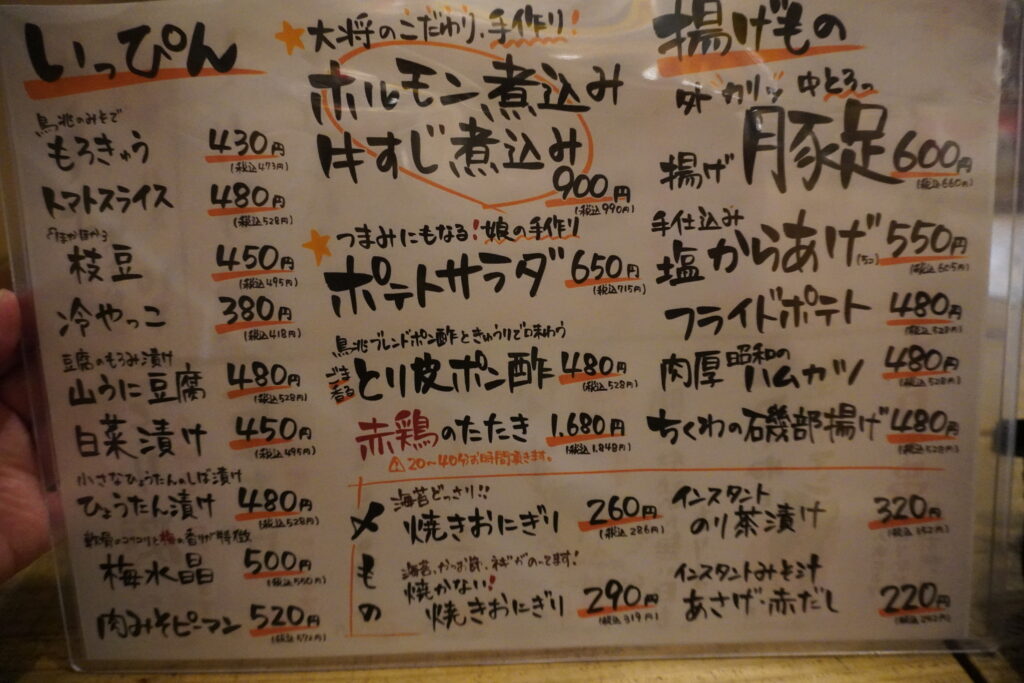 いっぴん
鳥兆のみそで
もろきゅう 430円
(税込473円)
トマトスライス 480円
(税込528円)
枝豆 450円
(税込495円)
冷やっこ 380円
(税込418円)
豆腐のもろみ漬け
山うに豆腐 480円
(税込528円)
白菜漬け 450円
(税込495円)
小さなひょうたんのしば漬け
ひょうたん漬け 480円
(税込528円)
軟骨のコリコリと梅の香りが特徴
梅水晶 500円
(税込550円)
肉みそピーマン 520円
(税込572円)
大将のこだわり、手作り!
ホルモン煮込み
牛すじ煮込み
900円
(税込990円)
つまみにもなる!娘の手作り
ポテトサラダ 650円
(税込715円)
鳥兆ブレンドポン酢ときゅうりで味わう
とり皮ポン酢 480円
(税込528円)
赤鶏のたたき 1.680円
(税込1,848円)
⚠20〜40分お時間頂きます。
揚げもの
外カリッ 中とろっ
揚げ 豚足 600円
(税込660円)
手仕込み
塩からあげ(5コ) 550円
(税込605円)
フライドポテト 480円
(税込528円)
肉厚 昭和のハムカツ 480円
(税込528円)
ちくわの石磯部揚げ 480円
(税込528円)
〆もの
海苔どっさり!!
焼きおにぎり 260円
(税込286円)
海苔、かつお節、ネギがのってます!
焼かない!
焼きおにぎり 290円
(税込319円)
インスタント
のり茶漬け 320円
(税込352円)
インスタントみそ汁
あさげ・赤だし 220円
(税込242円)